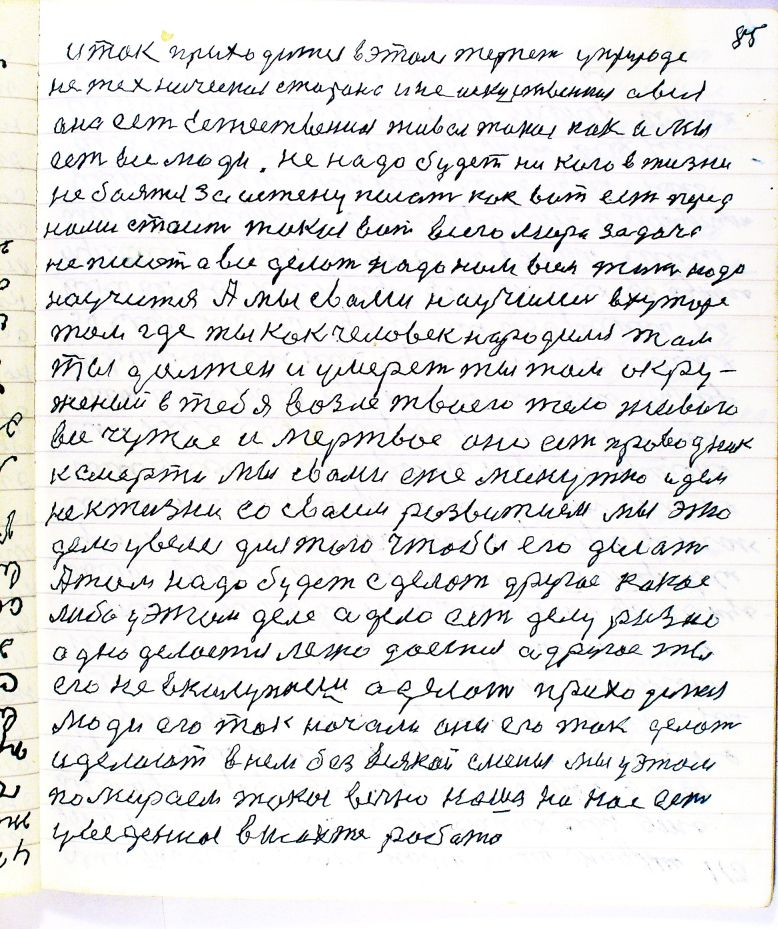 85
и так приходится в этом терпеть у природе
не техническая сторона и не искуственная а вся
она есть естественная живая такая как и мы
есть все люди. не надо будет ни кого в жизни
не боятся За истену писат как вот ест перед
нами стоит такая вот всего мира задача
не писат а все делат надо нам всем жить надо
научится А мы с вами научились в хуторе
том где ты как человек народился там
ты должен и умерет ты там окру-
жений в тебя возле твоего тело живого
все чужое и мертвое оно ест проводник
к смерти мы с вами еже минутно идем
не к жизни со своим развитием мы это
дело увели для того чтобы его делат
А там надо будет сделат другое какое
либо у этом деле а дело ест делу разно
одно делается легко дается а другое ты
его не а делат приходится
люди его так начали они его так делат
и делают в нем без всякой смены мы у этом
помираем такая вечно наша на нас ест
уведенная в работа